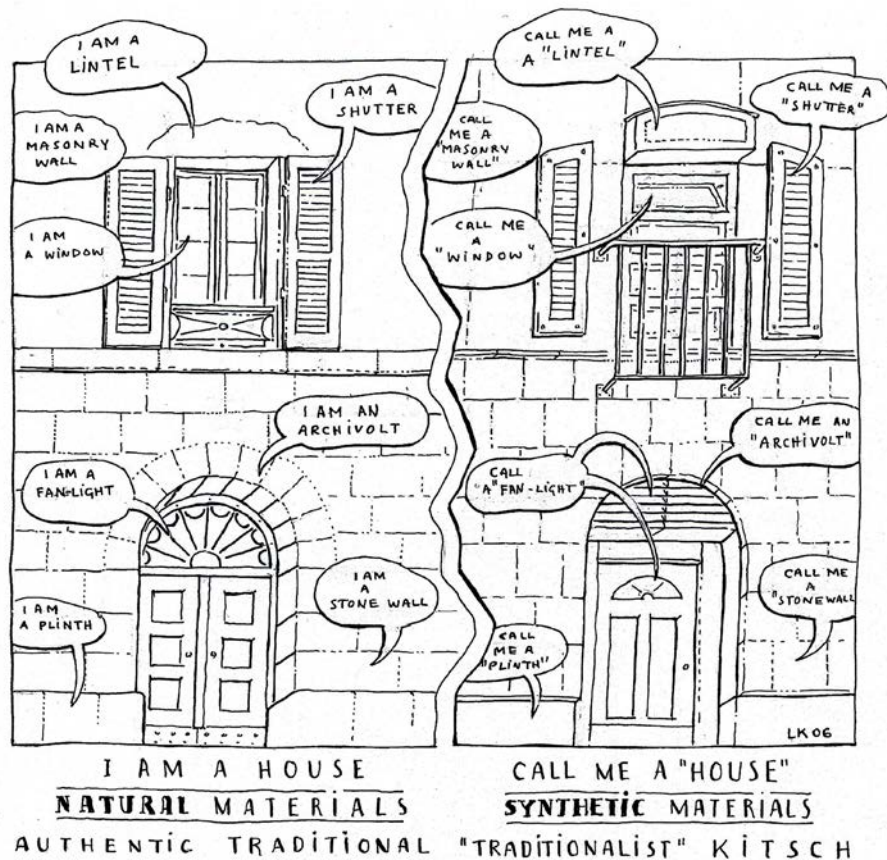 I AM A
LINTEL
I AM A
SHUTTER
I AM A
MASONRY
WALL
I AM
A WINDOW
I AM AN
ARCHIVOLT
I AM A
FAN-LIGHT
I AM
A
STONE WALL
I AM
A PLINTH
CALL ME A
A "LINTEL"
CALL ME A
"SHUTTER"
CALL
ME A
"MASONRY
WALL"
CALL ME
A
"WINDOW"
CALL ME AN
"ARCHIVOLT"
CALL
"A "FAN-LIGHT"
CALL ME
A
"STONEWALL
CALL
ME A
"PLINTH"
LK 06
I AM A HOUSE
NATURAL MATERIALS
AUTHENTIC TRADITIONAL
CALL ME A "HOUSE"
SYNTHETIC MATERIALS
"TRADITIONALIST" KITSCH